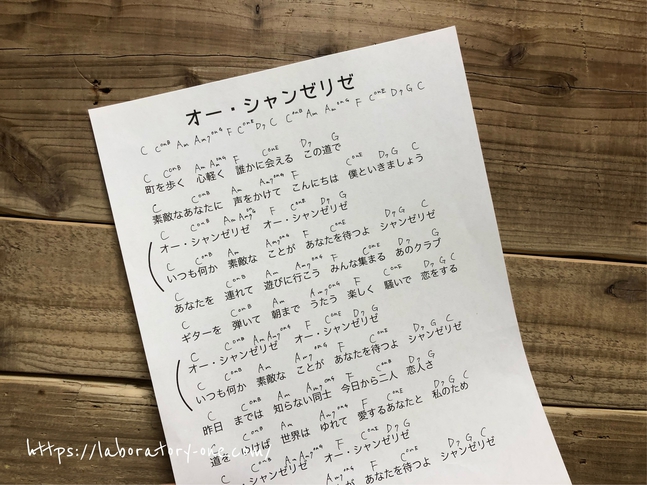 オー・シャンゼリゼ
C ConB Am Am7onG F ConE D7 C ConB Am AmonG F ConE D7 G C
C ConB Am AmonG F ConE D7 G
町を歩く 心軽く 誰かに会える この道で
C ConB Am Am7onG F ConE D7 G C
素敵なあなたに 声をかけて こんにちは 僕といきましょう
C ConB Am Am7onG F ConE D7 G
オー・シャンゼリゼ オー・シャンゼリゼ
C ConB Am Am7onG F ConE D7 G C
いつも何か 素敵な ことが あなたを待つよ シャンゼリゼ
C ConB Am Am7onG F ConE D7 G
あなたを 連れて 遊びに行こう みんな集まる あのクラブ
C ConB Am Am7onG F ConE D7 G C
ギターを 弾いて 朝まで うたう 楽しく 騒いで 恋をする
C ConB Am Am7onG F ConE D7 G
オー・シャンゼリゼ オー・シャンゼリゼ
C ConB Am Am7onG F ConE D7 G C
いつも何か 素敵な ことが あなたを待つよ シャンゼリゼ
C ConB Am Am7onG F ConE D7 G
昨日 までは 知らない同士 今日から二人 恋人さ
C ConB Am Am7onG F ConE D7 G C
道を ゆけば 世界は ゆれて 愛するあなたと 私のため
C ConB Am Am7onG F ConE D7 G
シャンゼリゼ オー・シャンゼリゼ
Am7onG F ConE D7 G C
が あなたを待つよ シャンゼリゼ
https://laboratory-one.com/